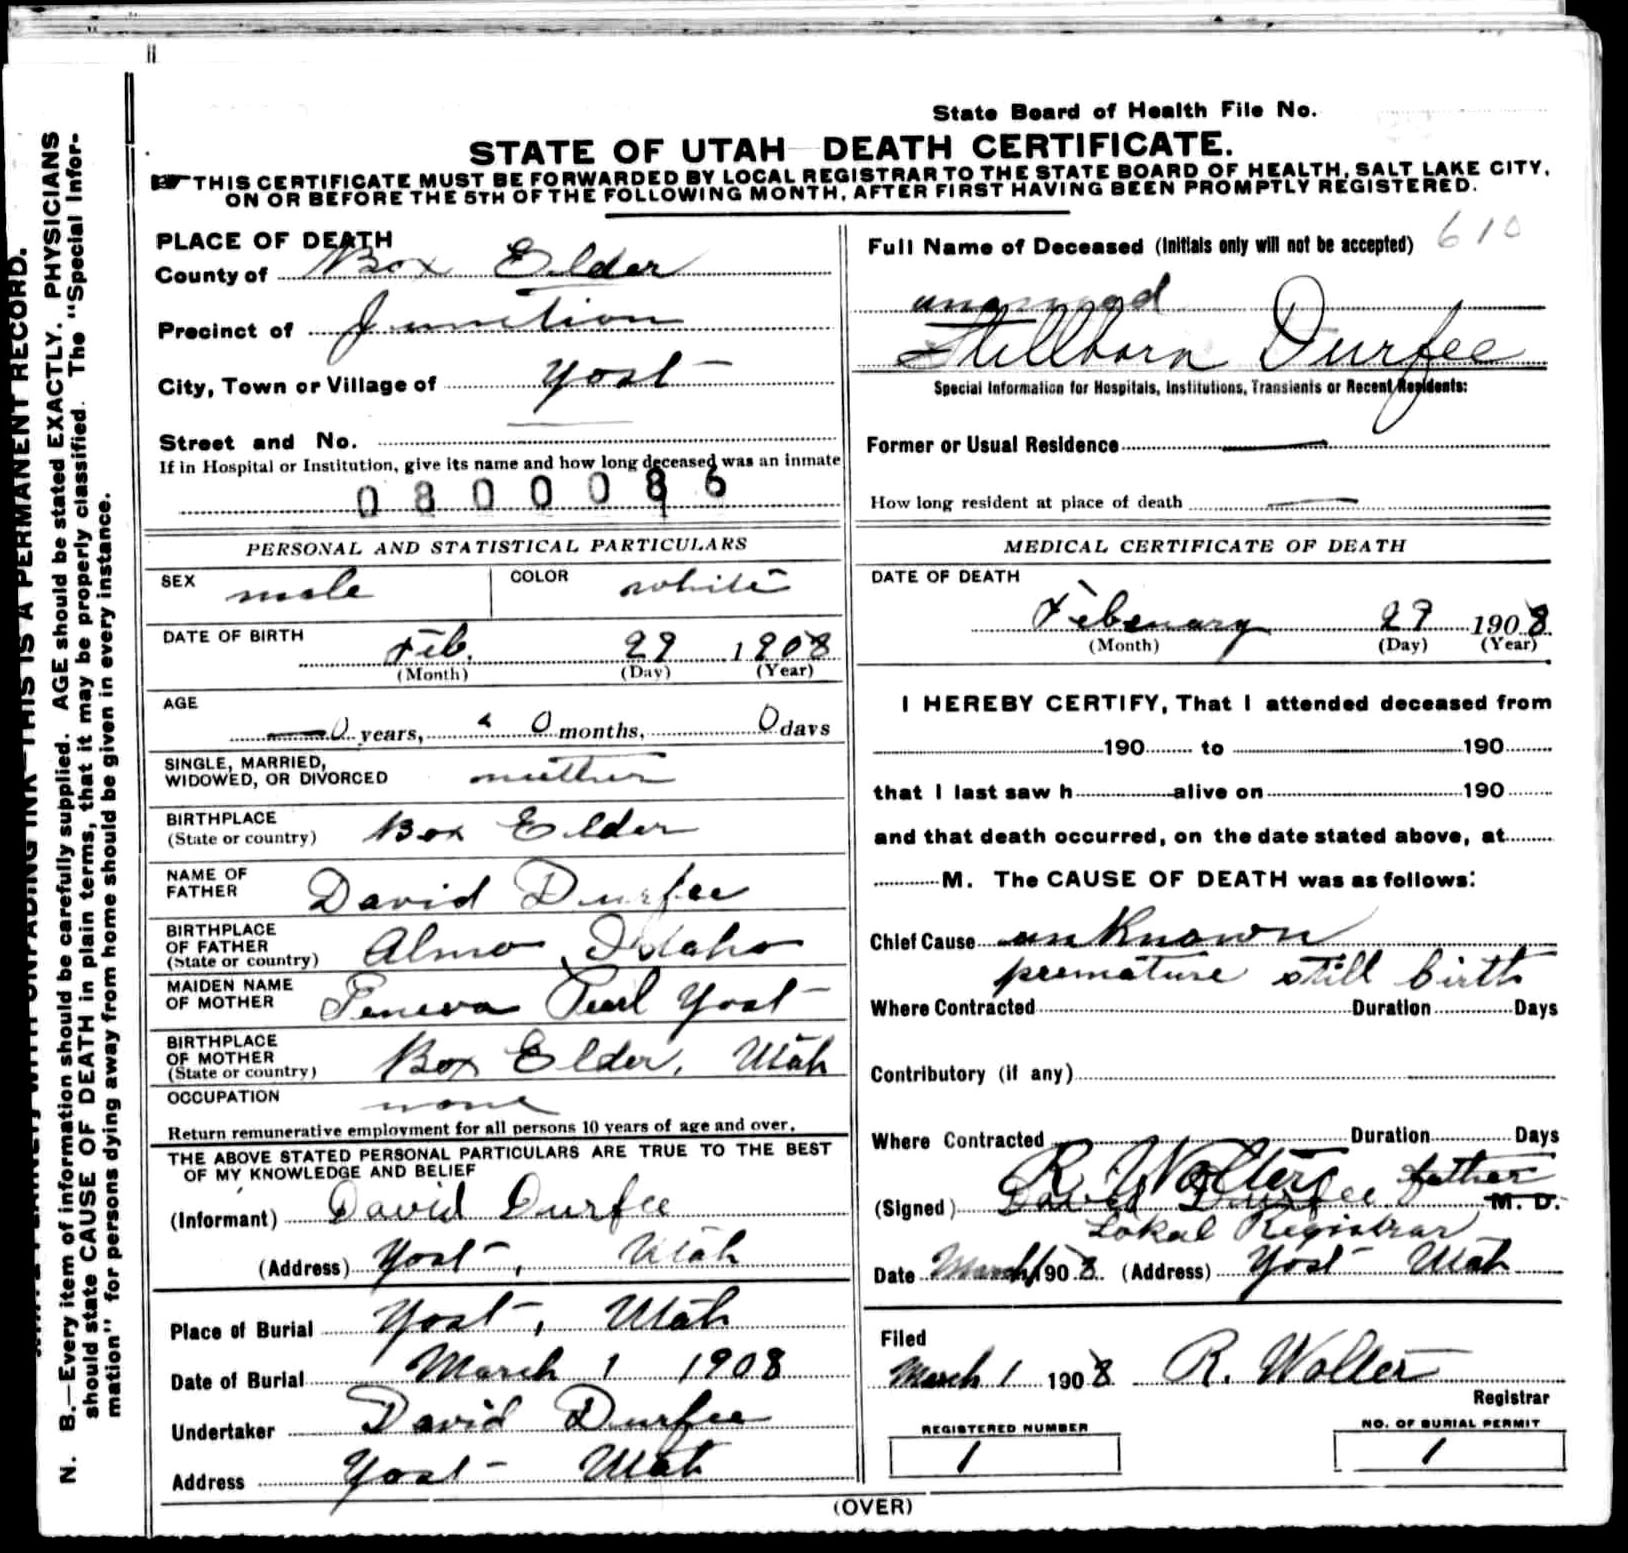 State Board of Health File No.
STATE OF UTAH DEATH CERTIFICATE.
THIS CERTIFICATE MUST BE FORWARDED BY LOCAL REGISTRAR TO THE STATE BOARD OF HEALTH, SALT LAKE CITY,
ON OR BEFORE THE 5TH OF THE FOLLOWING MONTH, AFTER FIRST HAVING BEEN PROMPTLY REGISTERED.
THIS IS A PERMANENT RECORD.
N. B.—Every item of information should be carefully supplied. AGE should be stated EXACTLY. PHYSICIANS
should state CAUSE OF DEATH in plain terms, that it may be properly classified. The "Special Infor-
mation" for persons dying away from home should be given in every instance.
PLACE OF DEATH
County of Box Elder
Precinct of Junction
City, Town or Village of Yost
Street and No.
If in Hospital or Institution, give its name and how long deceased was an inmate
0800086
PERSONAL AND STATISTICAL PARTICULARS
SEX male COLOR white
DATE OF BIRTH Feb. 29 1908
(Month) (Day) (Year)
AGE
0 years, 0 months, 0 days
SINGLE, MARRIED,
WIDOWED, OR DIVORCED
BIRTHPLACE
(State or country) Box Elder
NAME OF
FATHER David Durfee
BIRTHPLACE
OF FATHER
(State or country) Almo, Idaho
MAIDEN NAME
OF MOTHER Pearl Yost
BIRTHPLACE
OF MOTHER
(State or country) Box Elder, Utah
OCCUPATION none
Return remunerative employment for all persons 10 years of age and over.
THE ABOVE STATED PERSONAL PARTICULARS ARE TRUE TO THE BEST
OF MY KNOWLEDGE AND BELIEF
(Informant) David Durfee
(Address) Yost, Utah
Place of Burial Yost, Utah
Date of Burial March 1 1908
Undertaker David Durfee
Address Yost Utah
Full Name of Deceased (Initials only will not be accepted) 610
unnamed
Stillborn Durfee
Special Information for Hospitals, Institutions, Transients or Recent Residents:
Former or Usual Residence
How long resident at place of death
MEDICAL CERTIFICATE OF DEATH
DATE OF DEATH
Febuary 29 1908
(Month) (Day) (Year)
I HEREBY CERTIFY, That I attended deceased from
190 to 190
that I last saw h alive on 190
and that death occurred, on the date stated above, at
M. The CAUSE OF DEATH was as follows:
Chief Cause unknown
premature still birth
Where Contracted Duration Days
Contributory (if any)
Where Contracted Duration Days
R. Wolter father
(Signed) David Durfee M. D.
Lokal Registrar
Date March 1 1908 (Address) Yost Utah
Filed
March 1 1908 R. Wolter
Registrar
REGISTERED NUMBER
1
NO. OF BURIAL PERMIT
1
(OVER)